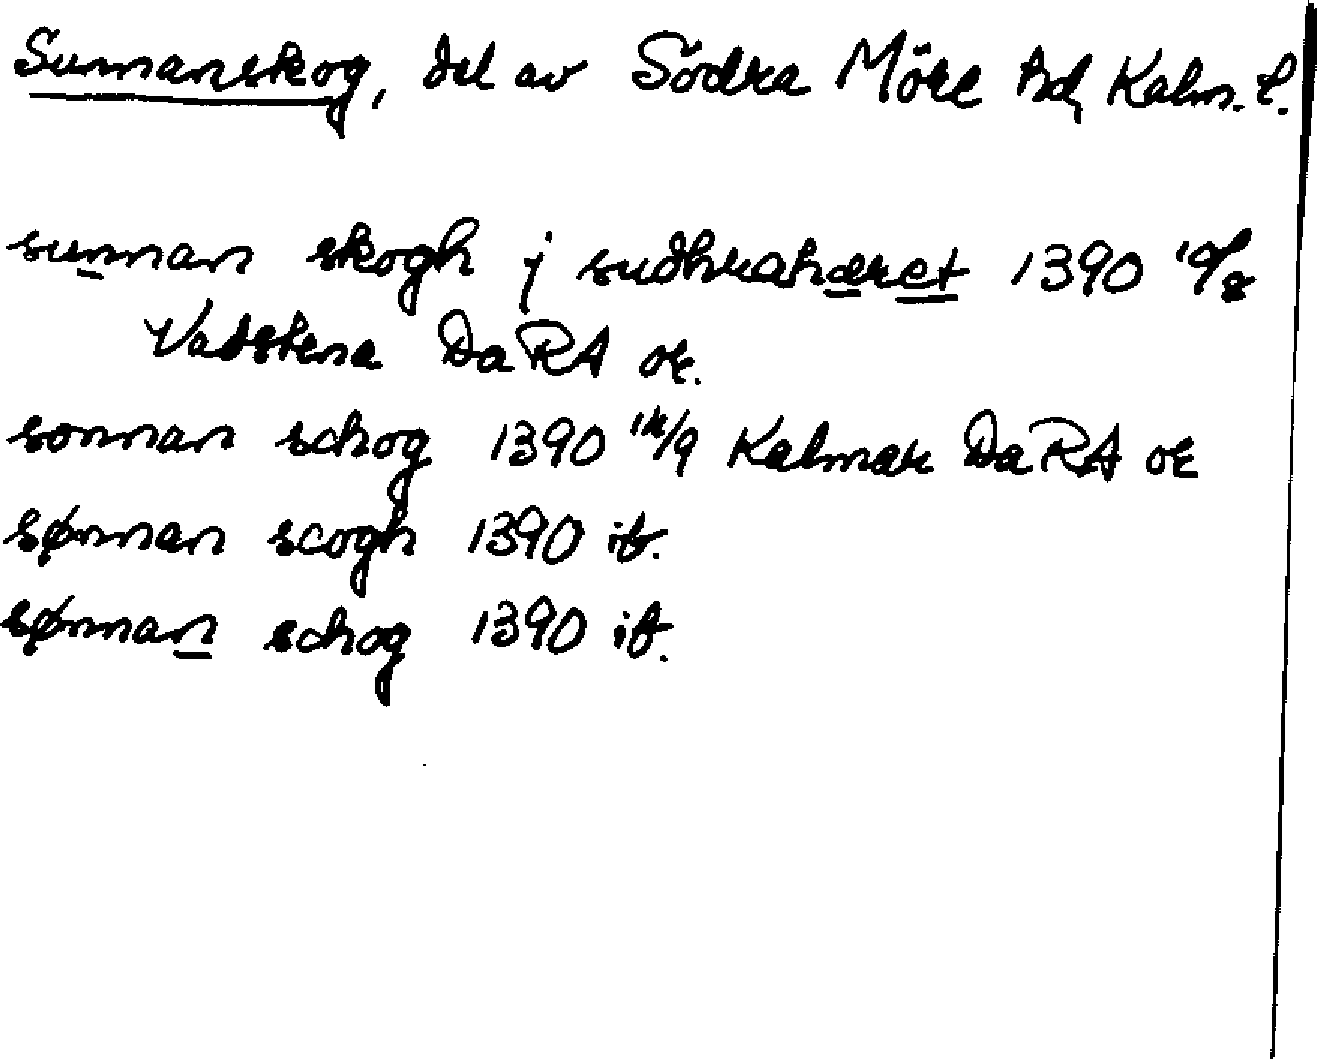 Sunnanskog, del av Södra Möre hd, Kalm. l.
sunnan skogh j sudhrahæret 1390 10/8
Vadstena DaRA or.
sonnan schog 1390 14/9 Kalmar DaRA or
sønnan scogh 1390 ib.
sønnan schog 1390 ib.